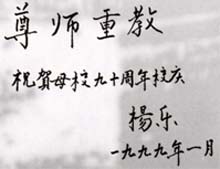 尊师重教
祝賀母校九十周年校庆
楊乐
一九九九年一月